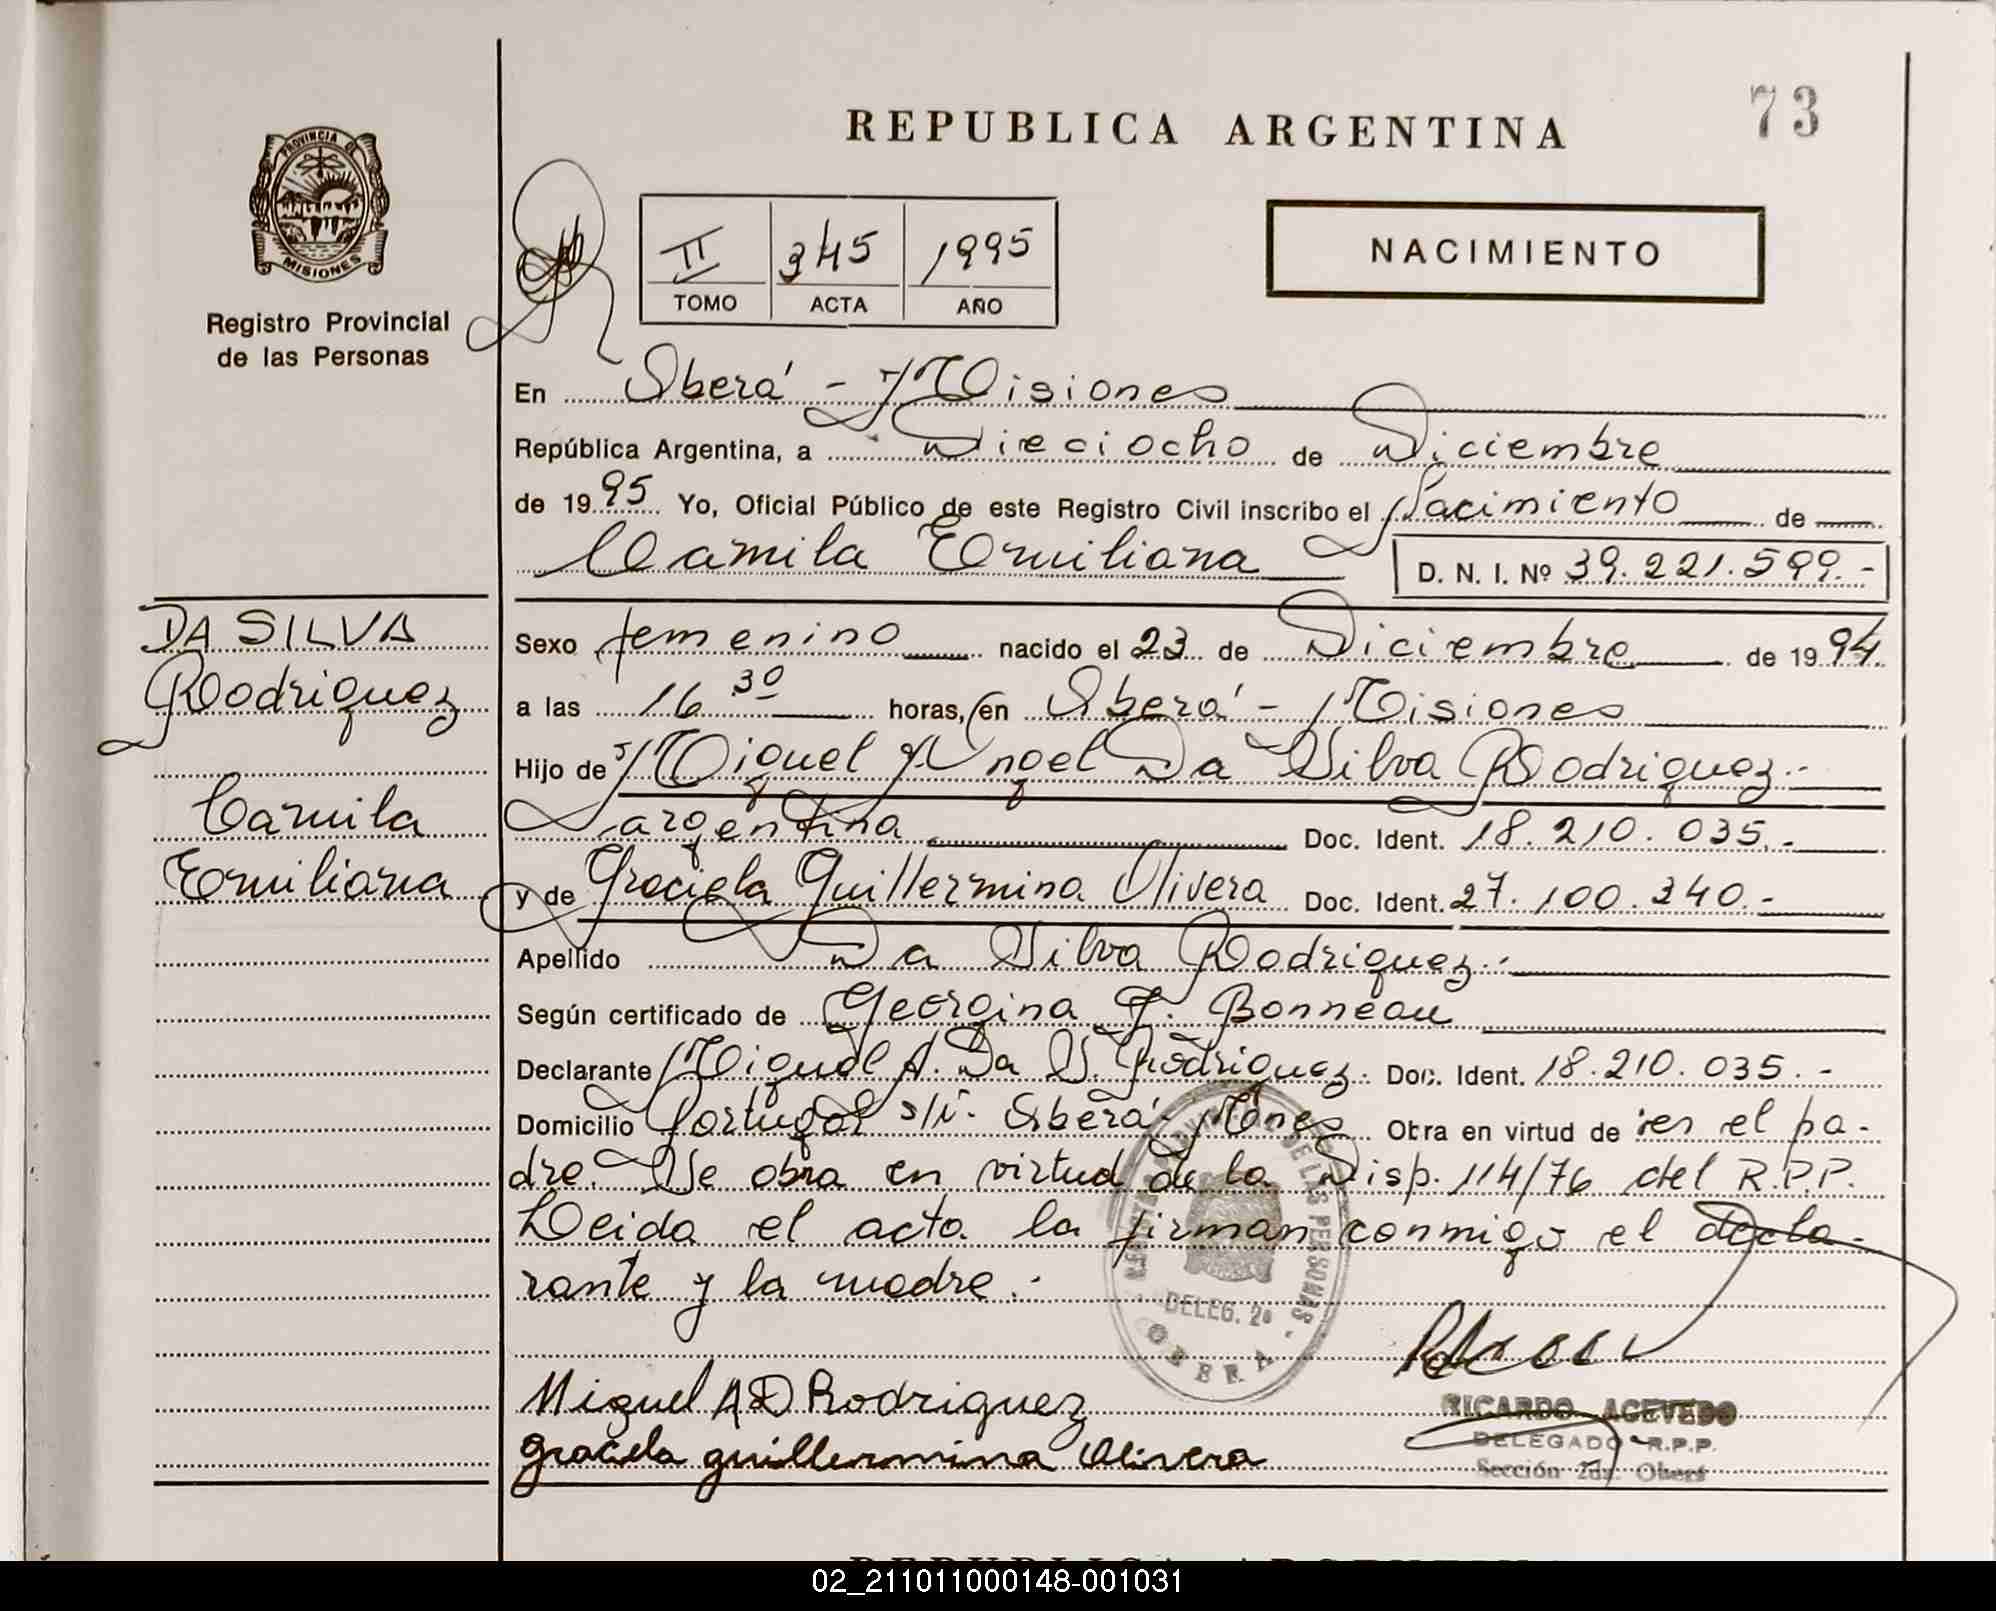 73
REPUBLICA ARGENTINA
PROVINCIA DE
MISIONES
Registro Provincial
de las Personas
II 345 1995
TOMO ACTA AÑO
NACIMIENTO
En Oberá - Misiones
República Argentina, a Dieciocho de Diciembre
de 1995 Yo, Oficial Público de este Registro Civil inscribo el Nacimiento de
Camila Emiliana D. N. I. Nº 39.221.599.-
DA SILVA
Rodriguez
Camila
Emiliana
Sexo femenino nacido el 23 de Diciembre de 1994.
a las 16 30 horas, en Oberá - Misiones
Hijo de Miguel Angel Da Silva Rodriguez.-
argentina Doc. Ident. 18.210.035.-
y de Graciela Guillermina Olivera Doc. Ident. 27.100.340.-
Apellido Da Silva Rodriguez.-
Según certificado de Georgina J. Bonneau
Declarante Miguel A. Da S. Rodriguez. Doc. Ident. 18.210.035.-
Domicilio Portugal s/n. Oberá Mnes Obra en virtud de ser el pa-
dre. Se obra en virtud de la Disp. 114/76 del R.P.P.
Leida el acta la firman conmigo el decla-
rante y la madre.-
DE LAS PERSONAS
DELEG. 2ª
OBERA
Miguel A D Rodriguez
graciela guillermina Olivera
RICARDO ACEVEDO
DELEGADO R.P.P.
Sección 2da. Oberá
REPUBLICA ARGENTINA
02_211011000148-001031